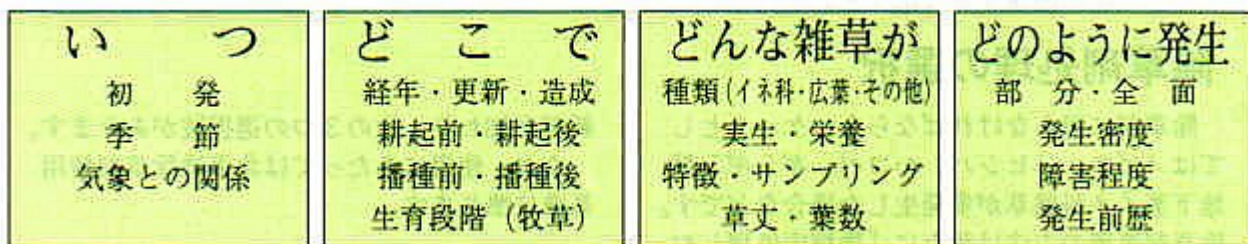 いつ
初発
季節
気象との関係
どこで
経年・更新・造成
耕起前・耕起後
播種前・播種後
生育段階（牧草）
どんな雑草が
種類（イネ科・広葉・その他）
実生・栄養
特徴・サンプリング
草丈・葉数
どのように発生
部分・全面
発生密度
障害程度
発生前歴